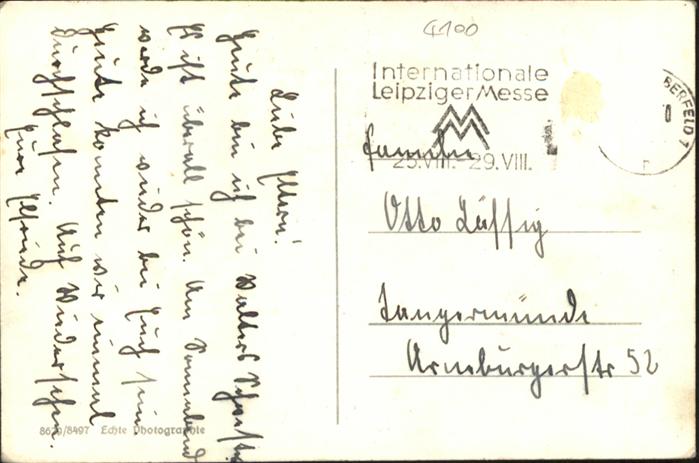 4100
Internationale
Leipziger Messe
25.VIII.-29.VIII.
BERFELD 1
Familie
Otto Lässig
Tangermünde
Arneburgerstr 52
Liebe Eltern!
Heute bin ich bei Walters
Es ist überall schön. Am Sonnabend
werde ich wieder bei Euch sein
Heute konnten wir einmal
durchschlafen. Auf Wiedersehen.
Eure
8629/8497 Echte Photographie